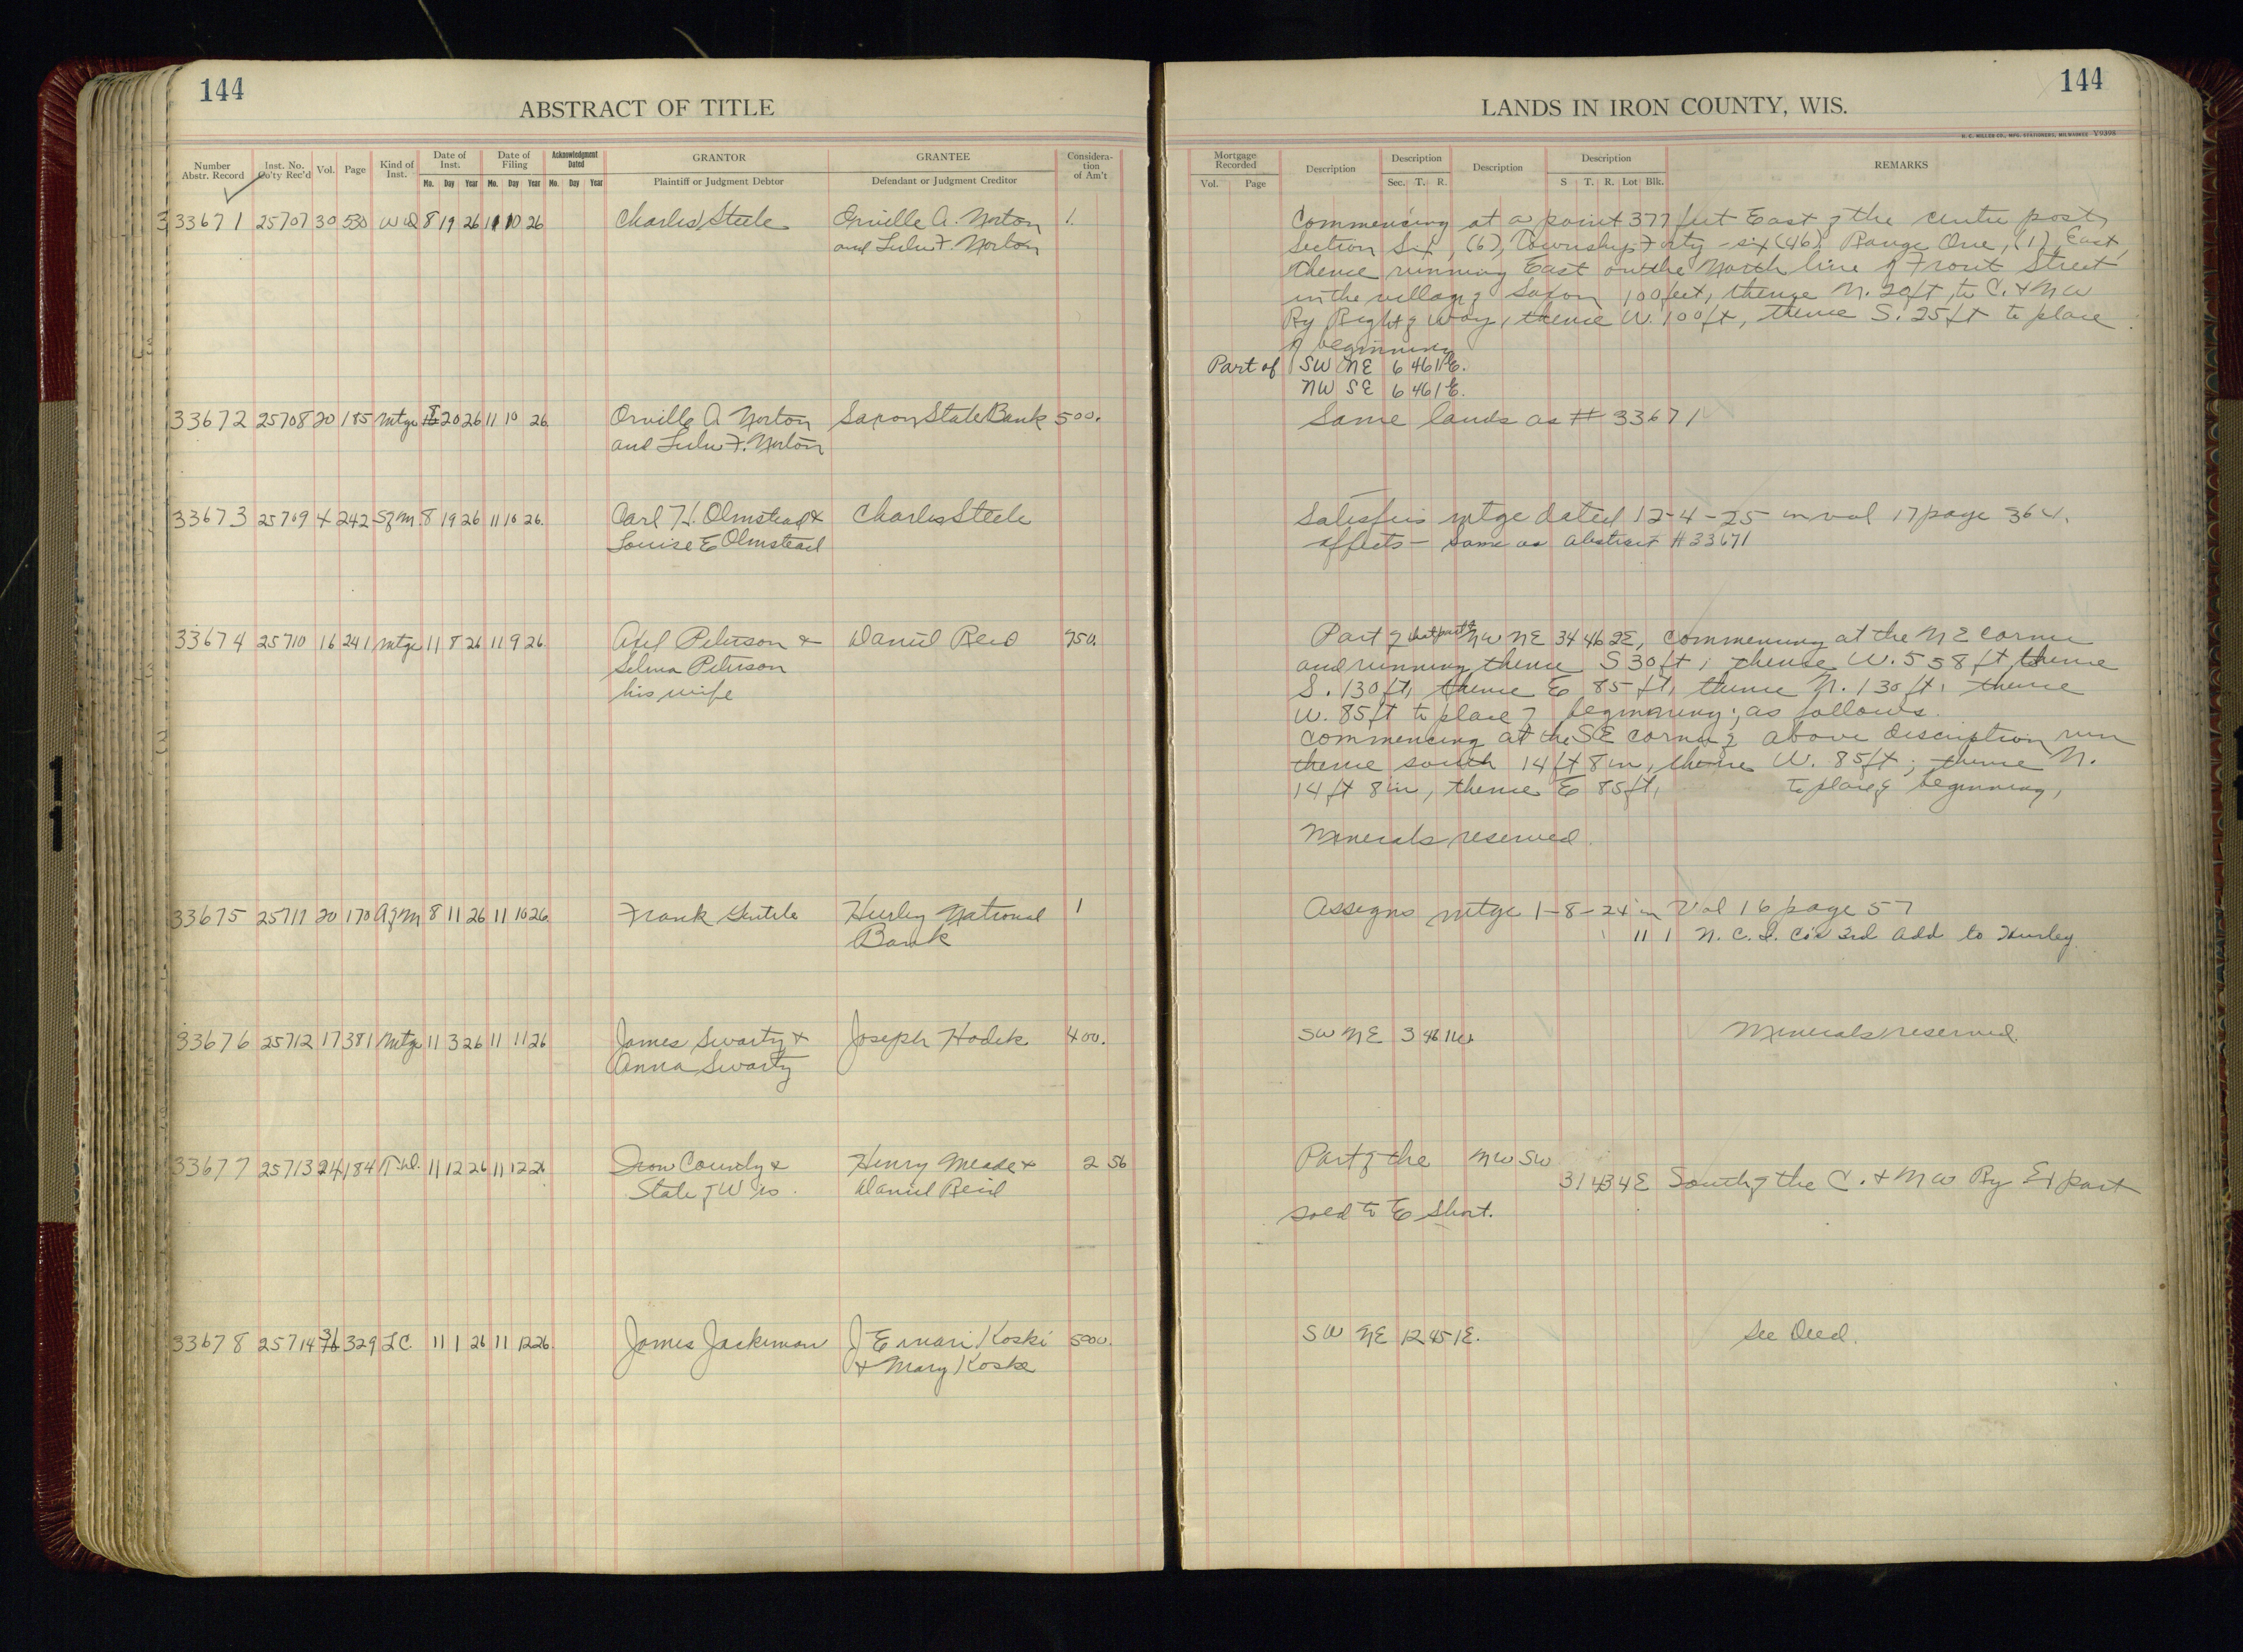 144
ABSTRACT OF TITLE
Number Abstr. Record | Inst. No. Co'ty Rec'd | Vol. | Page | Kind of Inst. | Date of Inst. Mo. Day Year | Date of Filing Mo. Day Year | Acknowledgment Dated Mo. Day Year | GRANTOR Plaintiff or Judgment Debtor | GRANTEE Defendant or Judgment Creditor | Considera-tion of Am't
33671 25707 30 530 WD 8 19 26 11 10 26 Charles Steele Orville A. Norton 1.
and Lulu F. Norton
33672 25708 20 185 Mtge 8 20 26 11 10 26 Orville A Norton Saxon State Bank 500.
and Lulu F. Norton
33673 25709 4 242 S of M 8 19 26 11 10 26 Carl H. Olmstead & Charles Steele
Louise E Olmstead
33674 25710 16 241 Mtge 11 8 26 11 9 26 Axel Peterson & Daniel Reid 950.
Selma Peterson
his wife
33675 25711 20 170 A of M 8 11 26 11 10 26 Frank Gentile Hurley National 1
Bank
33676 25712 17 381 Mtge 11 3 26 11 11 26 James Swarty & Joseph Hodek 400.
Anna Swarty
33677 25713 24 184 T.D. 11 12 26 11 12 26 Iron County & Henry Meade & 2 56
State of Wis. Daniel Reid
33678 25714 36 329 LC 11 1 26 11 12 26 James Jackman J Ernari Koski 500.
& Mary Koski
144
LANDS IN IRON COUNTY, WIS.
H. C. MILLER CO., MFG. STATIONERS, MILWAUKEE V9398
Mortgage Recorded Vol. Page | Description | Description Sec. T. R. | Description | Description S T. R. Lot Blk. | REMARKS
Commencing at a point 377 feet East of the centre post,
Section Six, (6), Township Forty-six (46), Range One, (1) East,
thence running East on the North line of Front Street
in the village of Saxon 100 feet, thence N. 20 ft to C. & N W
Ry Right of Way, thence W. 100 ft, thence S. 25 ft to place
of beginning
Part of SW NE 6 46 1 E.
NW SE 6 46 1 E.
Same lands as # 33671
Satisfies mtge dated 12-4-25 in vol 17 page 364.
affects - same as abstract # 33671
Part of that part of NW NE 34 46 2E, commencing at the NE corner
and running thence S 30 ft; thence W. 558 ft, thence
S. 130 ft, thence E 85 ft, thence N. 130 ft, thence
W. 85 ft to place of beginning; as follows.
Commencing at the SE corner of above description run
thence south 14 ft 8 in, thence W. 85 ft; thence N.
14 ft 8 in, thence E 85 ft, to place of beginning,
Minerals reserved.
Assigns mtge 1-8-24 in Vol 16 page 57
11 1 N. C. I. Co's 3rd Add to Hurley
SW NE 3 46 1W. Minerals reserved.
Part of the NW SW
31 43 4 E South of the C. & N W Ry Ex part
sold to E Short.
SW NE 12 45 1E. See Deed.